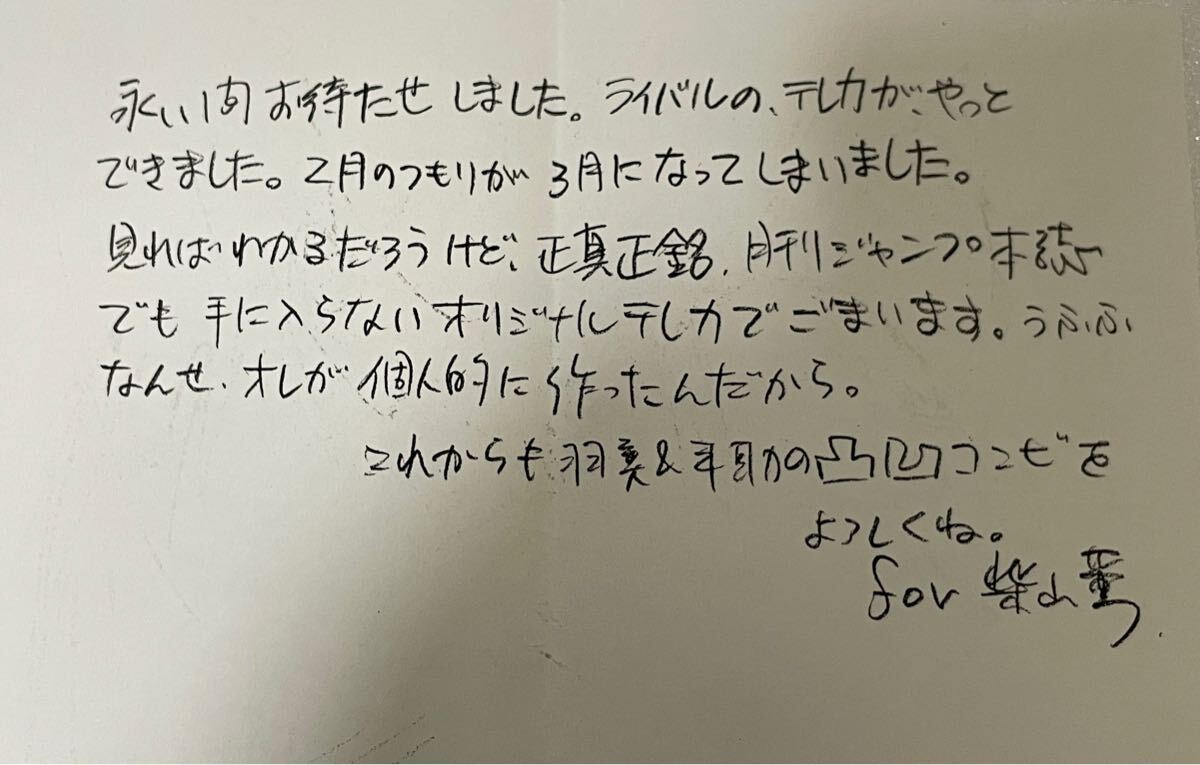 永い間お待たせしました。ライバルの、テレカが、やっと
できました。2月のつもりが3月になってしまいました。
見ればわかるだろうけど、正真正銘、月刊ジャンプ本誌
でも手に入らないオリジナルテレカでごまいます。うふふ
なんせ、オレが個人的に作ったんだから。
これからも羽美&耳カの凸凹コンビを
よろしくね。
for 柴山薫